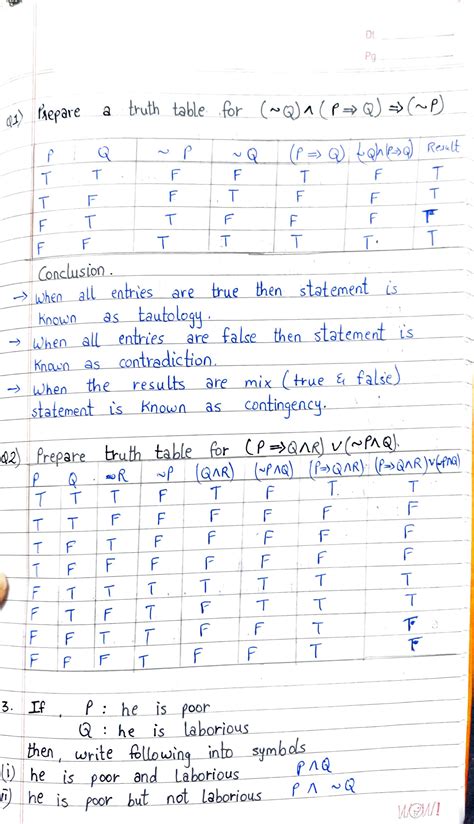 Dt
Pg
Q1) Prepare a truth table for (~Q)∧(P⇒Q)⇒(~P)
P Q ~P ~Q (P⇒Q) (~Q)∧(P⇒Q) Result
T T F F T F T
T F F T F F T
F T T F F F T
F F T T T T. T
Conclusion.
→ When all entries are true then statement is
known as tautology.
→ When all entries are false then statement is
known as contradiction.
→ When the results are mix (true & false)
statement is known as contingency.
Q2) Prepare truth table for (P⇒Q∧R)∨(~P∧Q).
P Q R ~P (Q∧R) (~P∧Q) (P⇒Q∧R) (P⇒Q∧R)∨(~P∧Q)
T T T F T F T. T
T T F F F F F F
T F T F F F F F
T F F F F F F F
F T T T T T T T
F T F T F T T T
F F T T F F T
F F F T F F T
3. If, P : he is poor
Q : he is laborious
then, write following into symbols
(i) he is poor and laborious P∧Q
ii) he is poor but not laborious P∧~Q
WOW!